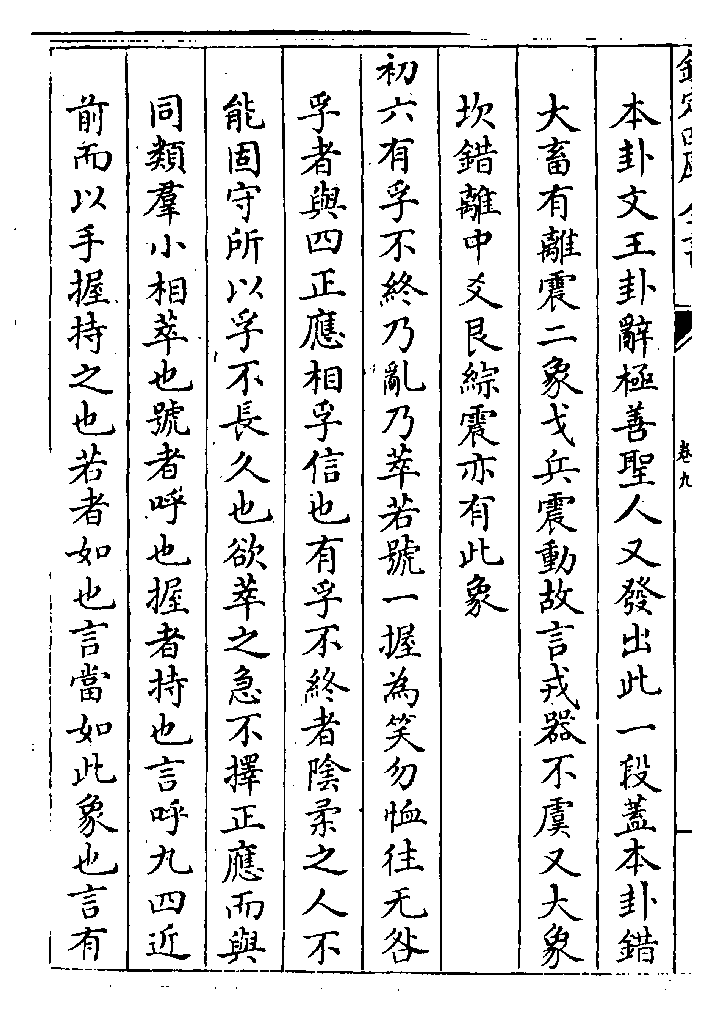 欽定四庫全書
卷九
本卦文王卦辭極善聖人又發出此一段蓋本卦錯
大畜有離震二象戈兵震動故言戎器不虞又大象
坎錯離中爻艮綜震亦有此象
初六有孚不終乃亂乃萃若號一握為笑勿恤往无咎
孚者與四正應相孚信也有孚不終者陰柔之人不
能固守所以孚不長久也欲萃之急不擇正應而與
同類羣小相萃也號者呼也握者持也言呼九四近
前而以手握持之也若者如也言當如此象也言有